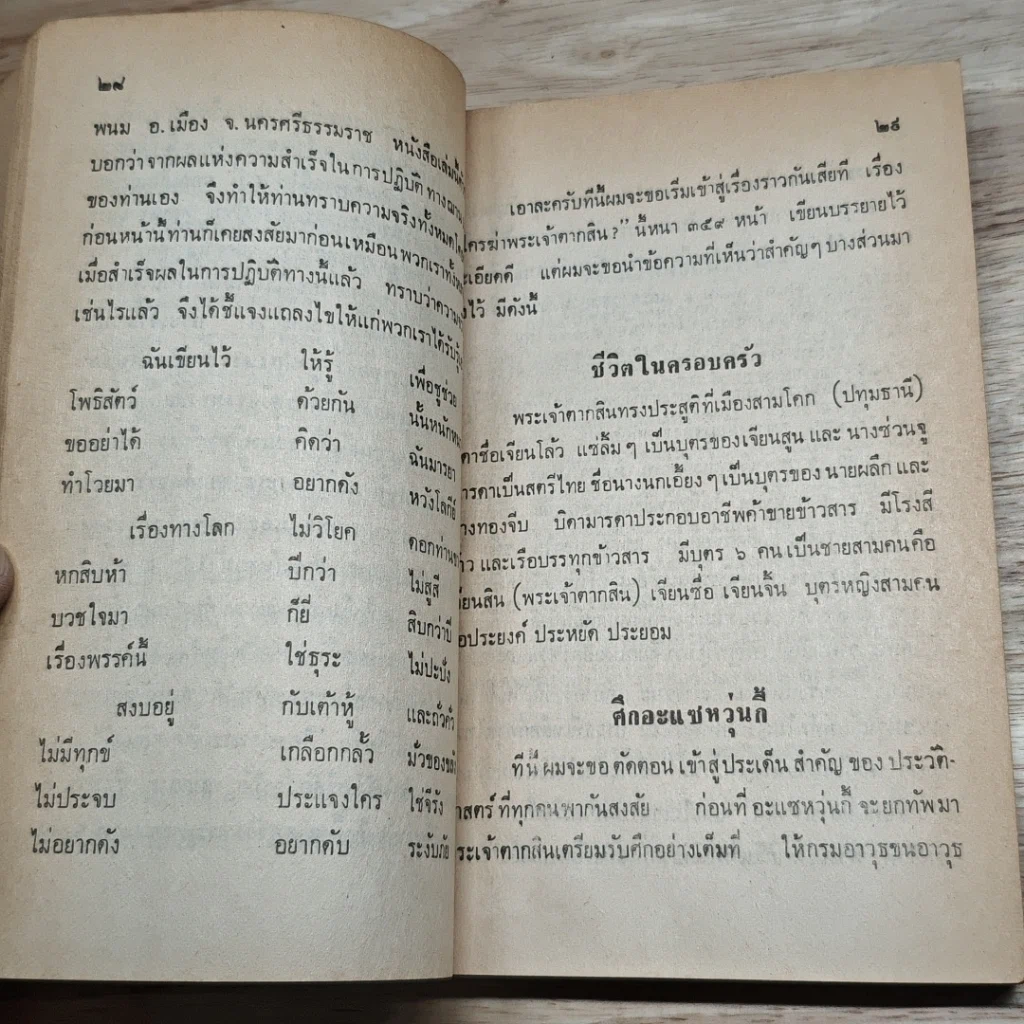 ๒๙
พนม อ. เมือง จ. นครศรีธรรมราช หนังสือเล่มนี้
บอกว่าจากผลแห่งความสำเร็จในการปฏิบัติทาง
ของท่านเอง จึงทำให้ท่านทราบความจริงทั้งหมด
ก่อนหน้านี้ท่านก็เคยสงสัยมาก่อนเหมือนพวกเรา
เมื่อสำเร็จผลในการปฏิบัติทางนี้แล้ว ทราบว่าความ
เช่นไรแล้ว จึงได้ชี้แจงแถลงไขให้แก่พวกเราได้รับรู้
ฉันเขียนไว้ ให้รู้ เพื่อชูช่วย
โพธิสัตว์ ด้วยกัน นั้นหนัก
ขออย่าได้ คิดว่า ฉันมารยา
ทำโวยมา อยากดัง หวังโลกีย์
เรื่องทางโลก ไม่วิโยค ดอกท่าน
หกสิบห้า ปีกว่า ไม่สูสี
บวชใจมา ก็ยี่ สิบกว่าปี
เรื่องพรรค์นี้ ใช่ธุระ ไม่ปะปัง
สงบอยู่ กับเต้าหู้ และถั่วคั่ว
ไม่มีทุกข์ เกลือกกลั้ว มั่วของขลัง
ไม่ประจบ ประแจงใคร ใช่จีรัง
ไม่อยากดัง อยากดับ ระงับภัย
๒๘
เอาละครับทีนี้ผมจะขอเริ่มเข้าสู่เรื่องราวกันเสียที เรื่อง
ใครฆ่าพระเจ้าตากสิน?” นี้หนา ๓๕๙ หน้า เขียนบรรยายไว้
ะเอียดดี แต่ผมจะขอนำข้อความที่เห็นว่าสำคัญๆ บางส่วนมา
งไว้ มีดังนี้
ชีวิตในครอบครัว
พระเจ้าตากสินทรงประสูติที่เมืองสามโคก (ปทุมธานี)
ดาชื่อเจียนโล้ว แซ่ลิ้มๆ เป็นบุตรของเจียนสูน และ นางซ่วนจู
ารดาเป็นสตรีไทย ชื่อนางนกเอี้ยงๆ เป็นบุตรของ นายผลึก และ
างทองจีบ บิดามารดาประกอบอาชีพค้าขายข้าวสาร มีโรงสี
าว และเรือบรรทุกข้าวสาร มีบุตร ๖ คน เป็นชายสามคนคือ
จียนสิน (พระเจ้าตากสิน) เจียนซื่อ เจียนจิ้น บุตรหญิงสามคน
อประยงค์ ประหยัด ประยอม
ศึกอะแซหวุ่นกี้
ทีนี้ ผมจะขอตัดตอน เข้าสู่ประเด็น สำคัญ ของ ประวัติ-
าสตร์ ที่ทุกคนพากันสงสัย ก่อนที่ อะแซหวุ่นกี้ จะยกทัพมา
ระเจ้าตากสินเตรียมรับศึกอย่างเต็มที่ ให้กรมอาวุธขนอาวุธ